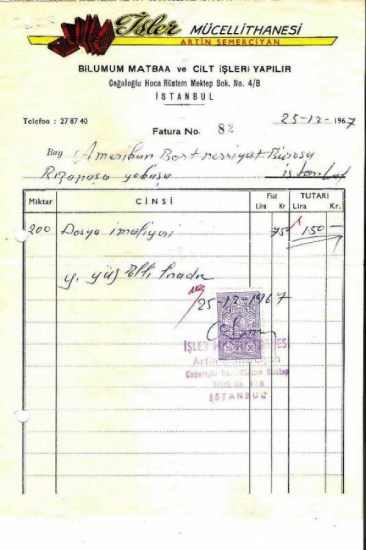 İşler MÜCELLİTHANESİ
ARTİN SEMERCİYAN
BİLUMUM MATBAA ve CİLT İŞLERİ YAPILIR
Cağaloğlu Hoca Rüstem Mektep Sok. No. 4/B
İSTANBUL
Telefon : 27 87 40
25-12-1967
Fatura No. 82
Bay Amerikan Bort neşriyat Bürosu
Rızapaşa yokuşu İstanbul
Miktar CİNSİ Fiat Lira Kr TUTARI Lira Kr.
200 Dosya imaliyesi 75 150
Y. yüz elli liradır
25-12-1967
İŞLER
Artin
Cağaloğlu
İSTANBUL